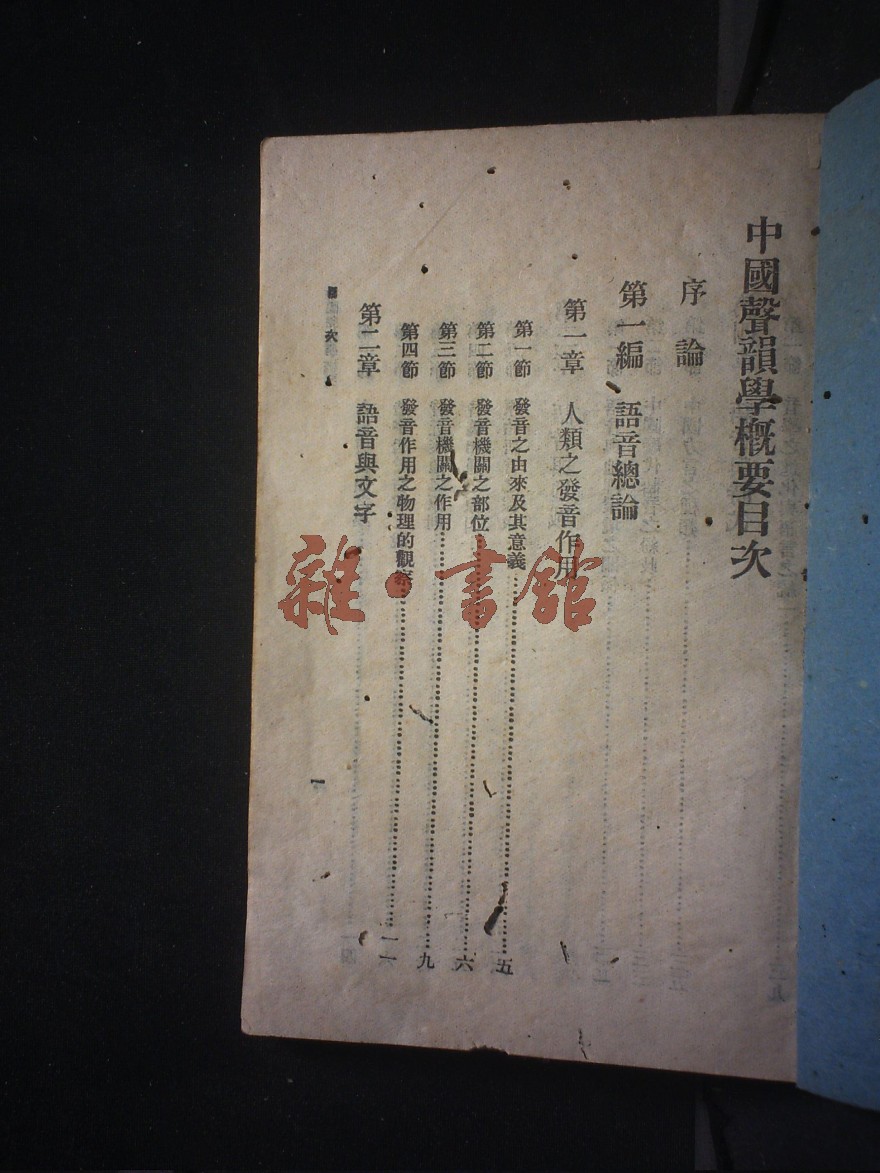 中國聲韻學概要目次
序論
第一編 語音總論
第一章 人類之發音作用
第一節 發音之由來及其意義……五
第二節 發音機關之部位……六
第三節 發音機關之作用……九
第四節 發音作用之物理的觀察……一一
第二章 語音與文字
次
一
雜·書館